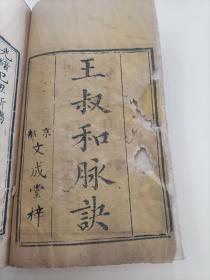 王叔和脉訣
京都
文成堂梓
光緒